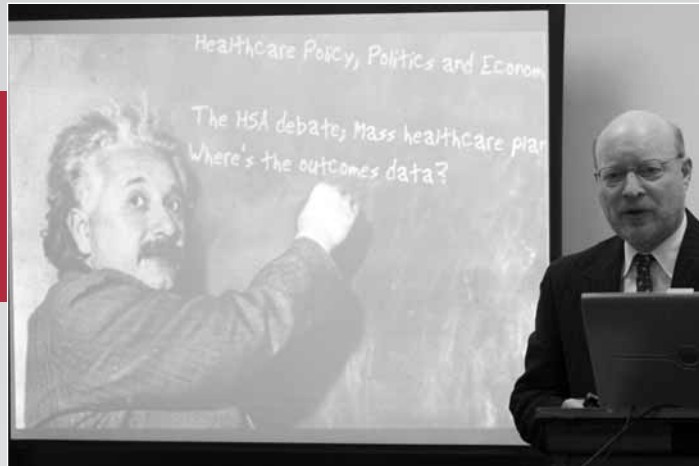 Healthcare Policy, Politics and Econom
The HSA debate; Mass healthcare plan
Where's the outcomes data?